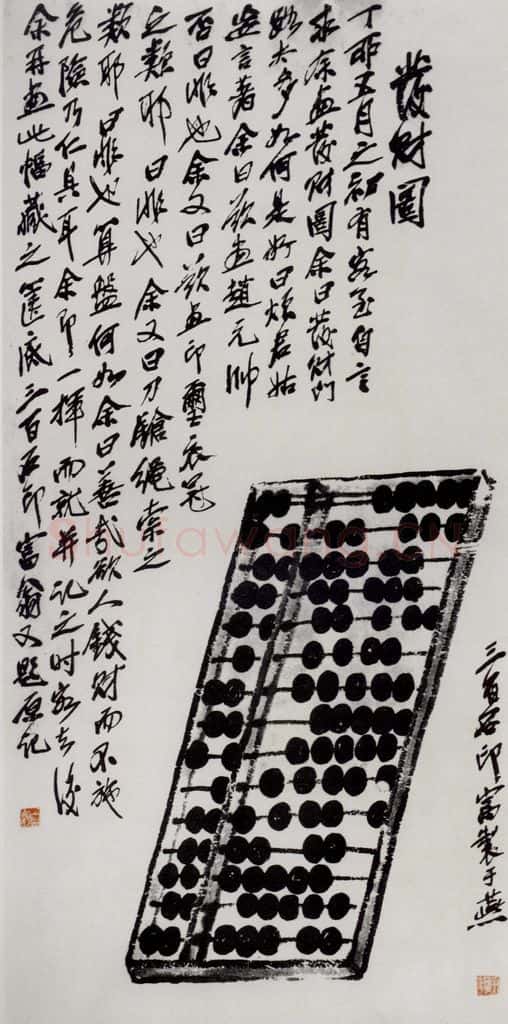 發財圖
丁卯五月之初有客至自言
求余畫發財圖余曰發財門
路太多如何是好曰煩君姑
妄言著余曰欲畫趙元帥
否曰非也余又曰欲畫印璽衣冠
之類耶曰非也余又曰刀鎗繩索之
類耶曰非也算盤何如余曰善哉欲人錢財而不施
危險乃仁具耳余即一揮而就并記之時客去後
余再畫此幅藏之篋底三百石印富翁又題原記
三百石印富製于燕
Shufawang.CN